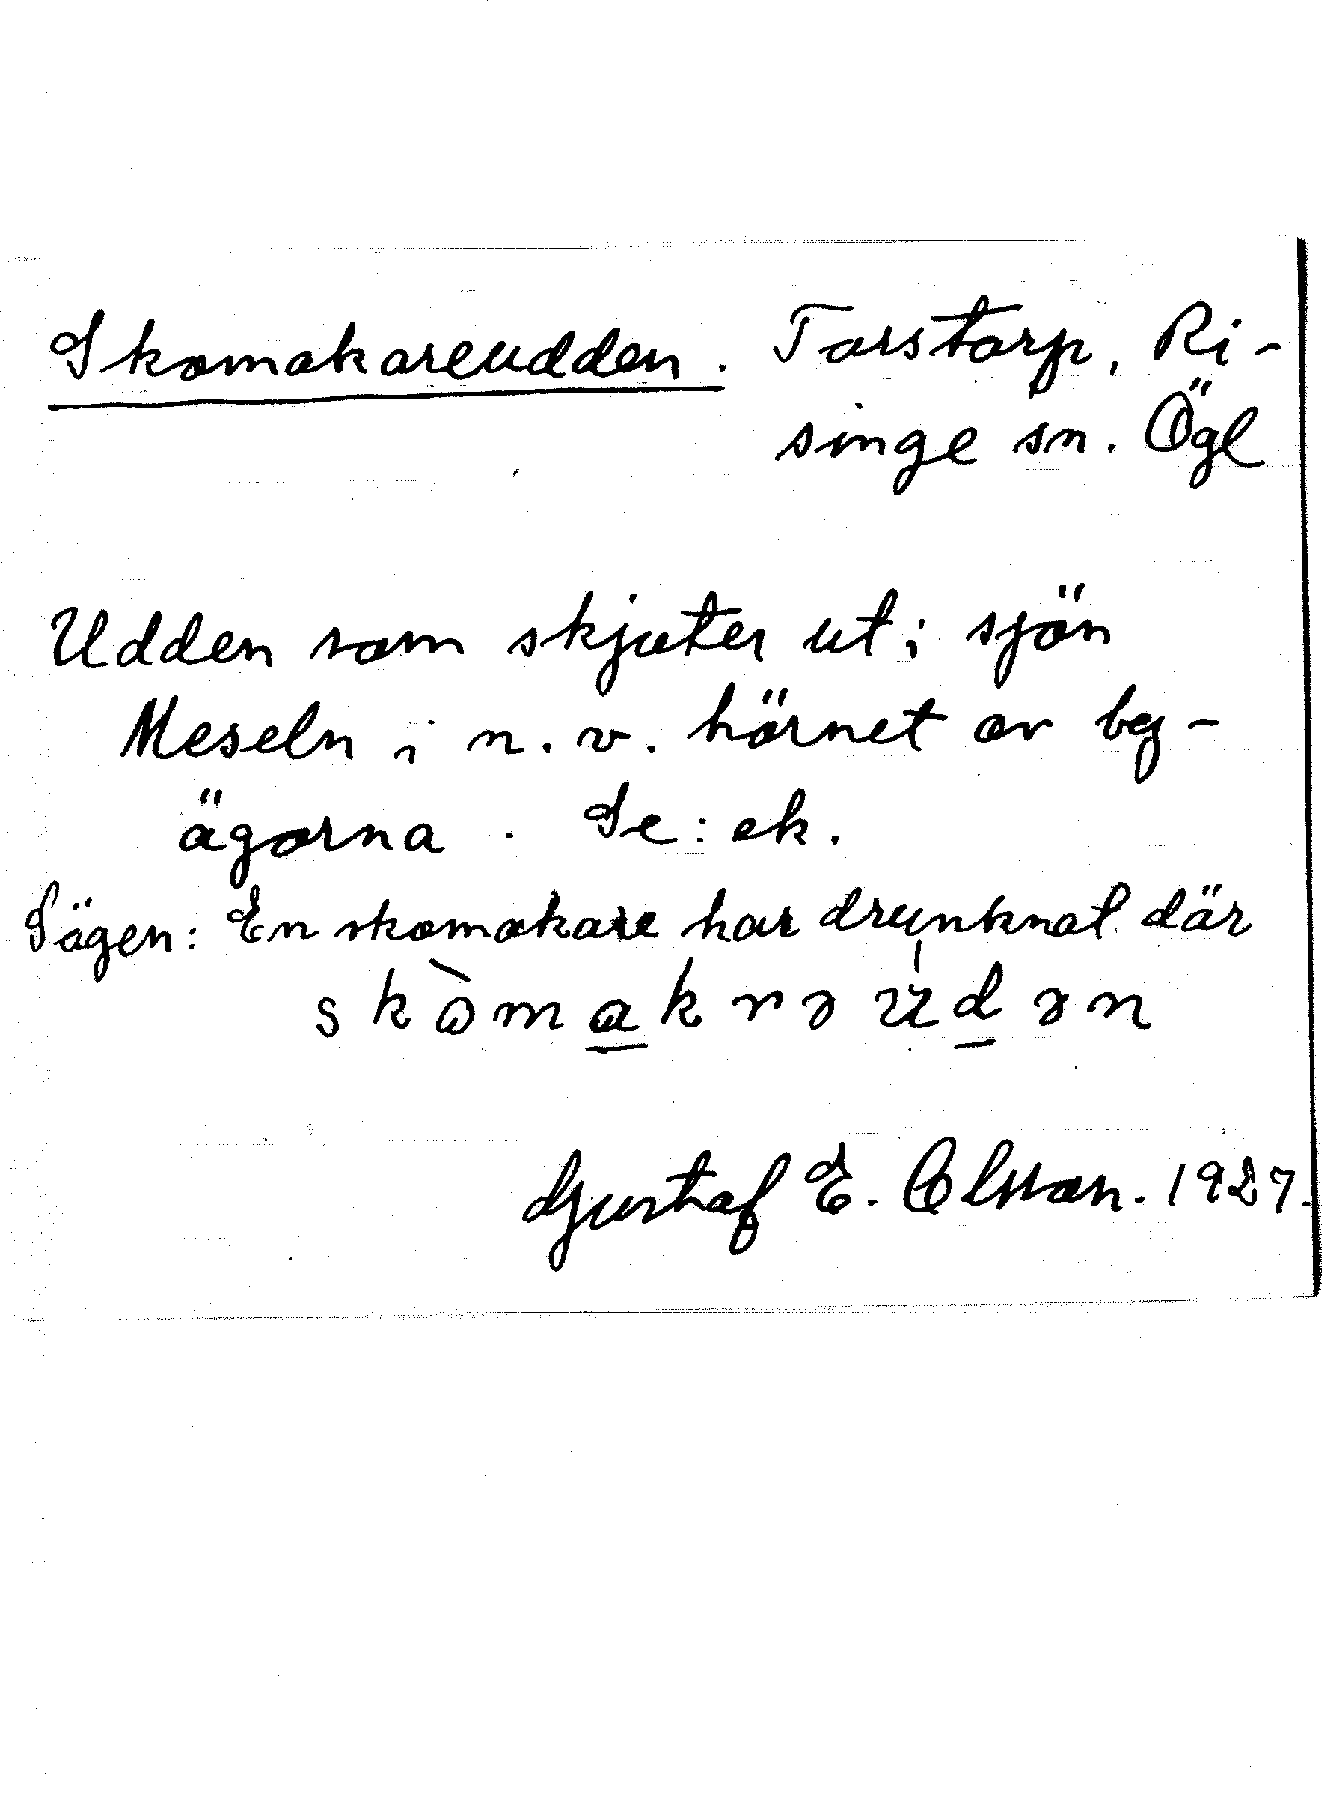 Skomakareudden. Torstorp, Ri-
singe sn. Ögl
Udden som skjuter ut i sjön
Meseln i n.v. hörnet av by-
ägorna. Se: ek.
Sägen: En skomakare har drunknat där
skòmakrəúdən
Gustaf E. Olsson. 1927.